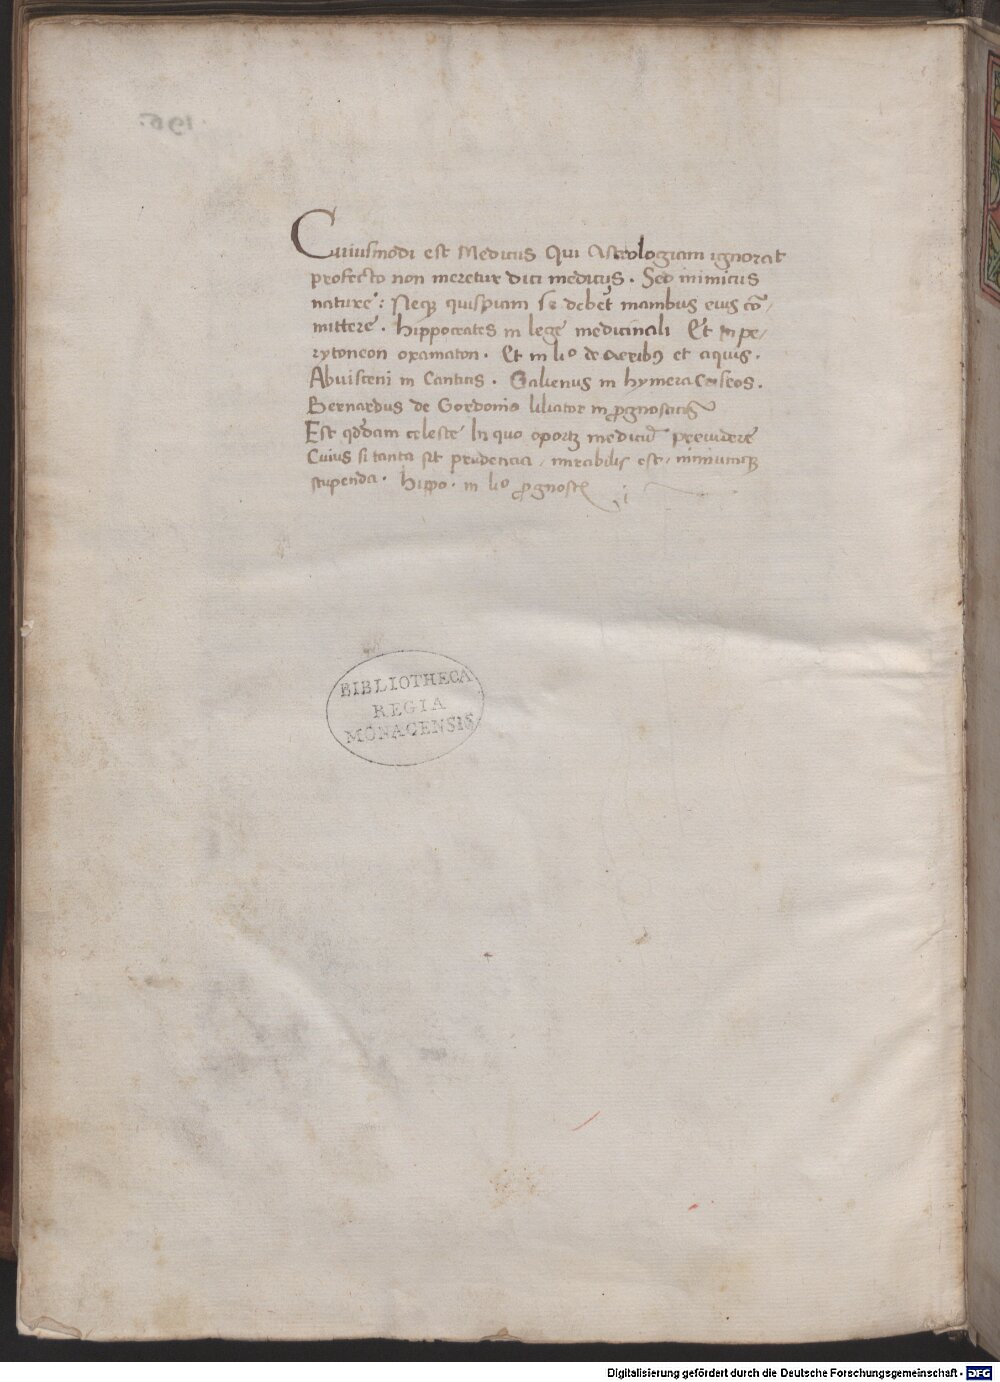 Cuiusmodi est Medicus Qui Astrologiam ignorat
profecto non meretur dici medicus . Sed inimicus
nature : Neqȝ quispiam se debet manibus eius cō/
mittere . hippocrates in lege medicinali Et in pe/
rytoneon oxamaton . Et in liº de Aeribꝰ et aquis .
Abuisceni in Canticis . Galienus in hymera Caseos .
Bernardus de Gordonio liliator in ꝓgnosticis
Est qddam celeste In quo oportȝ medicū preuidere
Cuius si tanta sit prudencia / mirabilis est / nimiumqȝ
stupenda . hippo . in liº ꝓgnosti
BIBLIOTHECA
REGIA
MONACENSIS
Digitalisierung gefördert durch die Deutsche Forschungsgemeinschaft - DFG